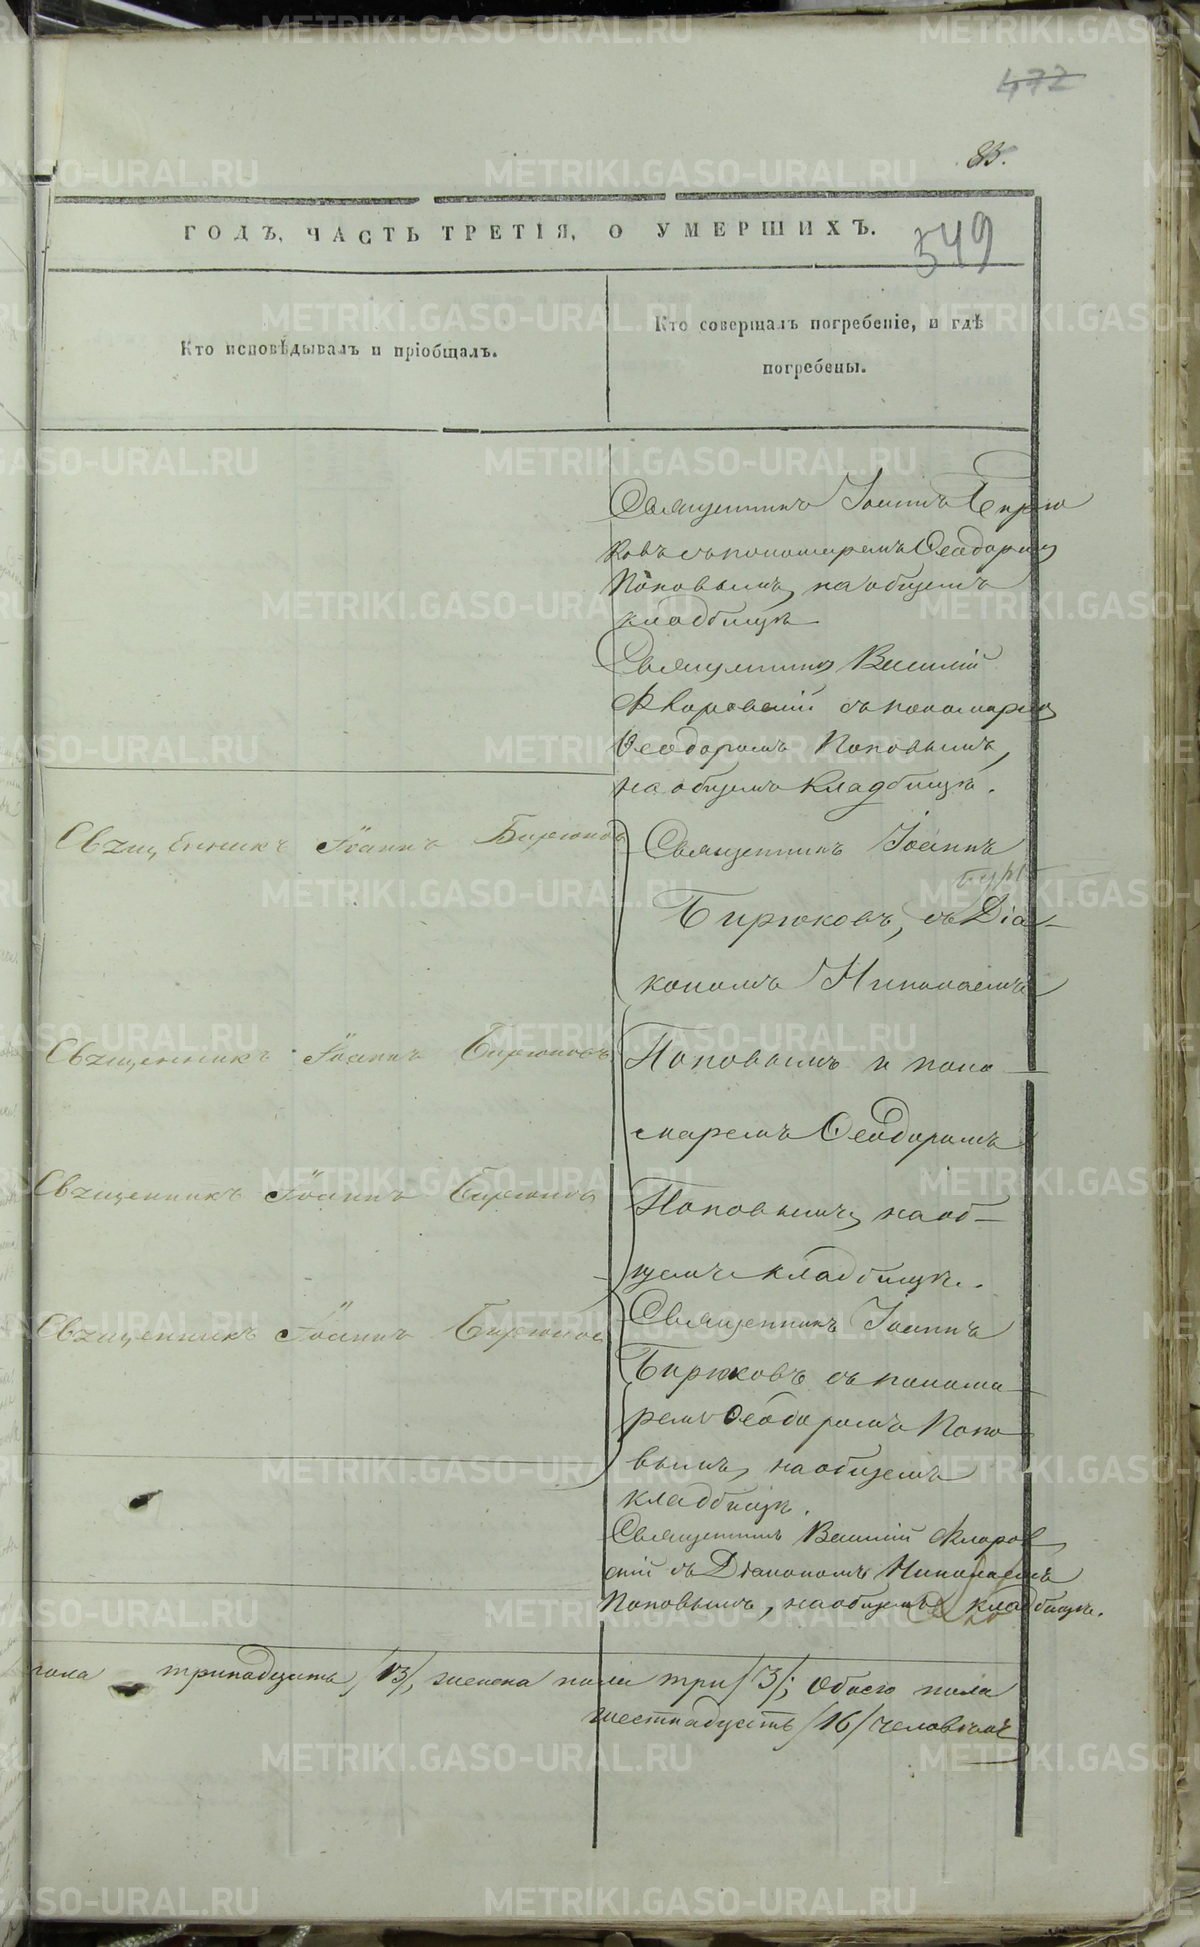 472
83.
ГОДЪ, ЧАСТЬ ТРЕТІЯ, О УМЕРШИХЪ.
549
Кто исповѣдывалъ и пріобщалъ.
Кто совершалъ погребеніе, и гдѣ
погребены.
Священникъ Іоаннъ Бирю
ковъ съ пономаремъ Ѳеодоромъ
Поповымъ, на общемъ
кладбищѣ
Священникъ Василій
Флоровскій съ пономаремъ
Ѳеодоромъ Поповымъ,
на общемъ кладбищѣ.
Священникъ Іоаннъ Бирюковъ
Священникъ Іоаннъ
Бирюковъ, съ Діа-
кономъ Николаемъ
Священникъ Іоаннъ Бирюковъ
Поповымъ и поно
маремъ Ѳеодоромъ
Священникъ Іоаннъ Бирюковъ
Поповымъ, на об-
щемъ кладбищѣ.
Священникъ Іоаннъ Бирюковъ
Священникъ Іоаннъ
Бирюковъ съ понома
ремъ Ѳеодоромъ Попо
вымъ, на общемъ
кладбищѣ.
Священникъ Василій Флоров
скій съ Діакономъ Николаемъ
Поповымъ, на общемъ кладбищѣ.
пола тринадцать /13/, женска пола три /3/; Обоего пола
шестнадцать /16/ человѣкъ
METRIKI.GASO-URAL.RU